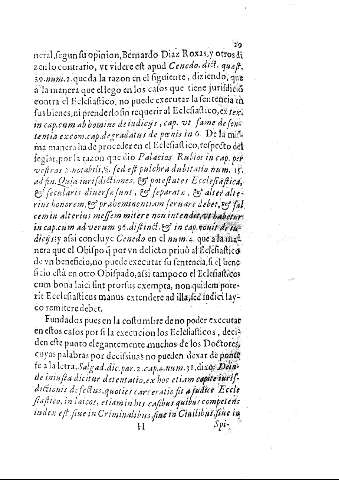 29
neral, segun su opinion, Bernardo Diaz Roxas, y otros di
zen lo contrario, vt videre est apud Cenedo. dict. quæst.
39. num. 2. que da la razon en el siguiente, diziendo, que
a la manera que el lego en los caios que tiene jurisdiciõ
contra el Eclesiastico, no puede executar la sentencia en
sus bienes, ni prenderlo sin requerir al Eclesiastico, ex tex.
in cap. cum ab homine de iudicijs, cap. vt famæ de sen-
tentia excom. cap. degradatus de penis in 6. De la mis-
ma manera ha de proceder en el Eclesiastico, respecto del
seglar, por la razon que dio Palacios Rubios in cap. per
vestras 2. notabili, §. sed est pulchra dubitatio num. 15.
ad fin. Quia iurisdictiones, & potestates Ecclesiastica,
& seculares diuersæ sunt, & separatæ, & alter alte-
rius honorem, & præeminentiam seruare debet, & fal
cem in alterius messem mitere non intendit, vt habetur
in cap. cum ad verum 96. distinct. & in cap. nouit de iu-
dicijs y assi concluye Cenedo en el num. 4. que a la ma
nera que el Obispo q̃ por vn delicto priuò al Eclesiastico
de vn beneficio, no puede executar su sentencia, si el be
ficio està en otro Obispado, assi tampoco el Eclesiastico
cum bona laici sint prorsus exempta, non quidem pote-
rit Ecclesiasticus manus extendere ad illa, sed iudici lay-
co remitere debet.
Fundados pues en la costumbre de no poder executar
en estos casos por si la execucion los Eclesiasticos, deci-
den este punto elegantemente muchos de los Doctores,
cuyas palabras por decissiuas no pueden dexar de ponerse
a la letra. Salgad. dic. par. 2. cap. 4. num. 31. dize: Dein-
de iniusta dicitur detentatio, ex hoc etiam capite iuris-
dictionis defectus, quoties carceratio fit a judice Eccle
siastico, in laicos, etiam in his casibus quibus competens
iudex est siue in Criminalibus, siue in Ciuilibus, siue in
H Spi-